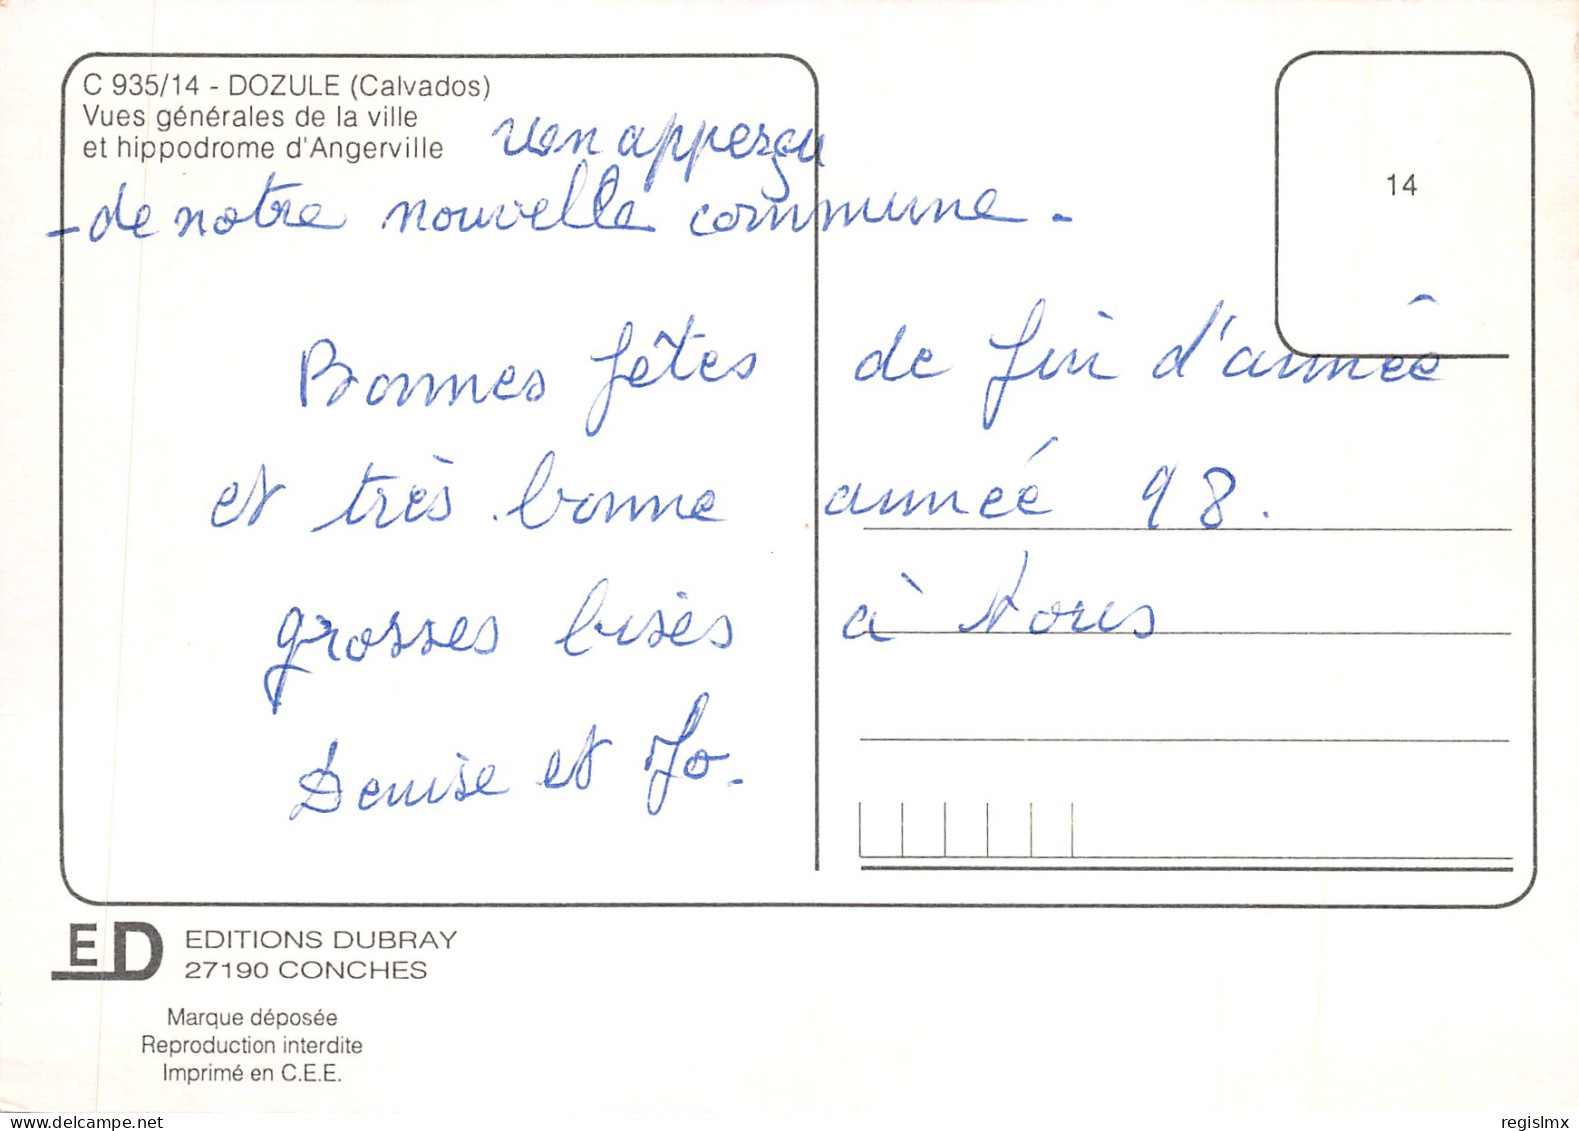 C 935/14 - DOZULE (Calvados)
Vues générales de la ville
et hippodrome d'Angerville
14
un apperçu
- de notre nouvelle commune -
Bonnes fêtes de fin d'année
et très bonne année 98.
grosses bises à vous
Denise et Jo.
ED
EDITIONS DUBRAY
27190 CONCHES
Marque déposée
Reproduction interdite
Imprimé en C.E.E.
regislmx